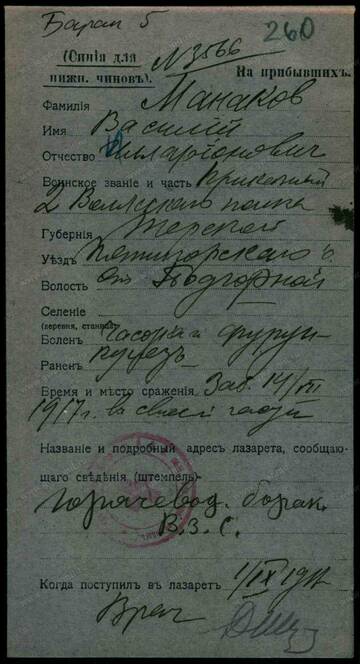 Барак 5
260
(Синія для
нижн. чиновъ).
N 3566
На прибывшихъ.
Фамилія Манаков
Имя Василій
Отчество Илларіонович
Воинское званіе и часть Приказный
2 Волжскаго полка
Губернія Терской
Уѣздъ Пятигорскаго о.
Волость ст. Подгорной
Селеніе
(деревня, станица)
Боленъ Часотка и фурун-
кулезъ
Раненъ
Время и мѣсто сраженія Заб. 14/VII
1917 г. в своей части
Названіе и подробный адресъ лазарета, сообщаю-
щаго свѣдѣнія (штемпель)
Горячевод. барак.
В.З.С.
Когда поступилъ въ лазаретъ 1/IX 1917
Врач